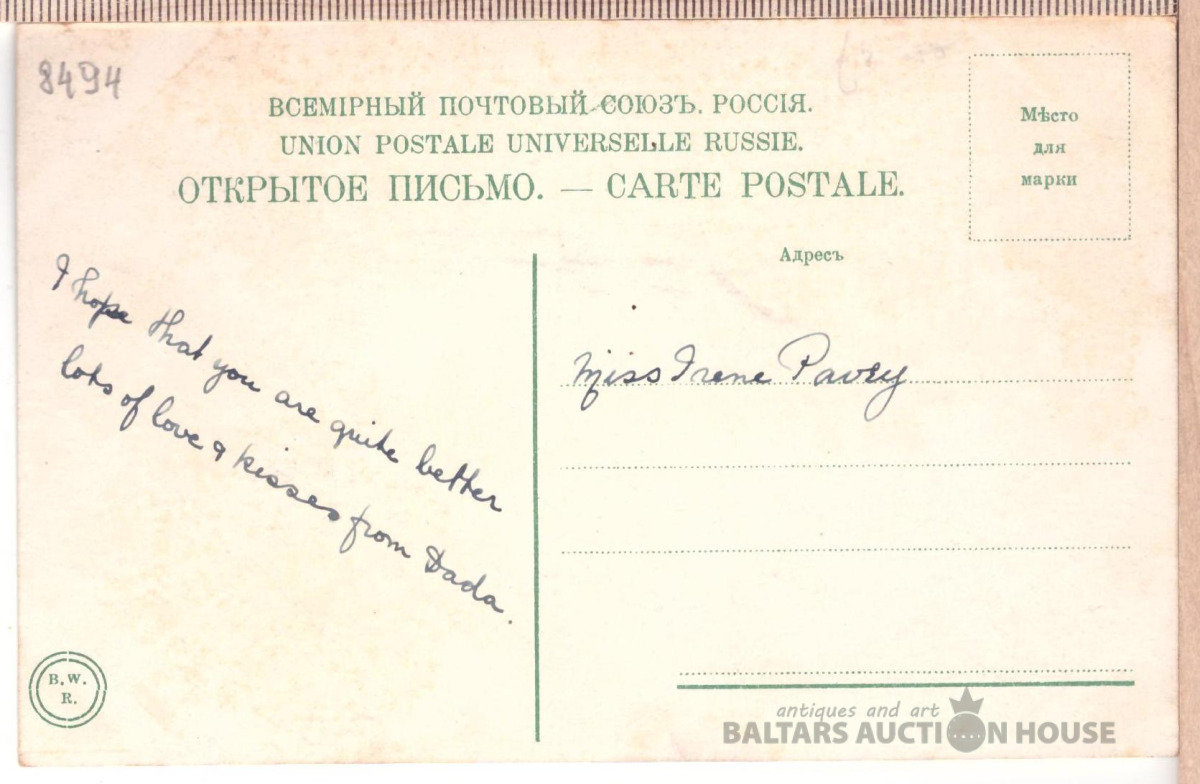 8494
ВСЕМІРНЫЙ ПОЧТОВЫЙ СОЮЗЪ. РОССІЯ.
UNION POSTALE UNIVERSELLE RUSSIE.
ОТКРЫТОЕ ПИСЬМО. — CARTE POSTALE.
Мѣсто
для
марки
Адресъ
I hope that you are quite better
lots of love & kisses from Dada.
Miss Irene Pavey
B.W.
R.
antiques and art
BALTARS AUCTION HOUSE